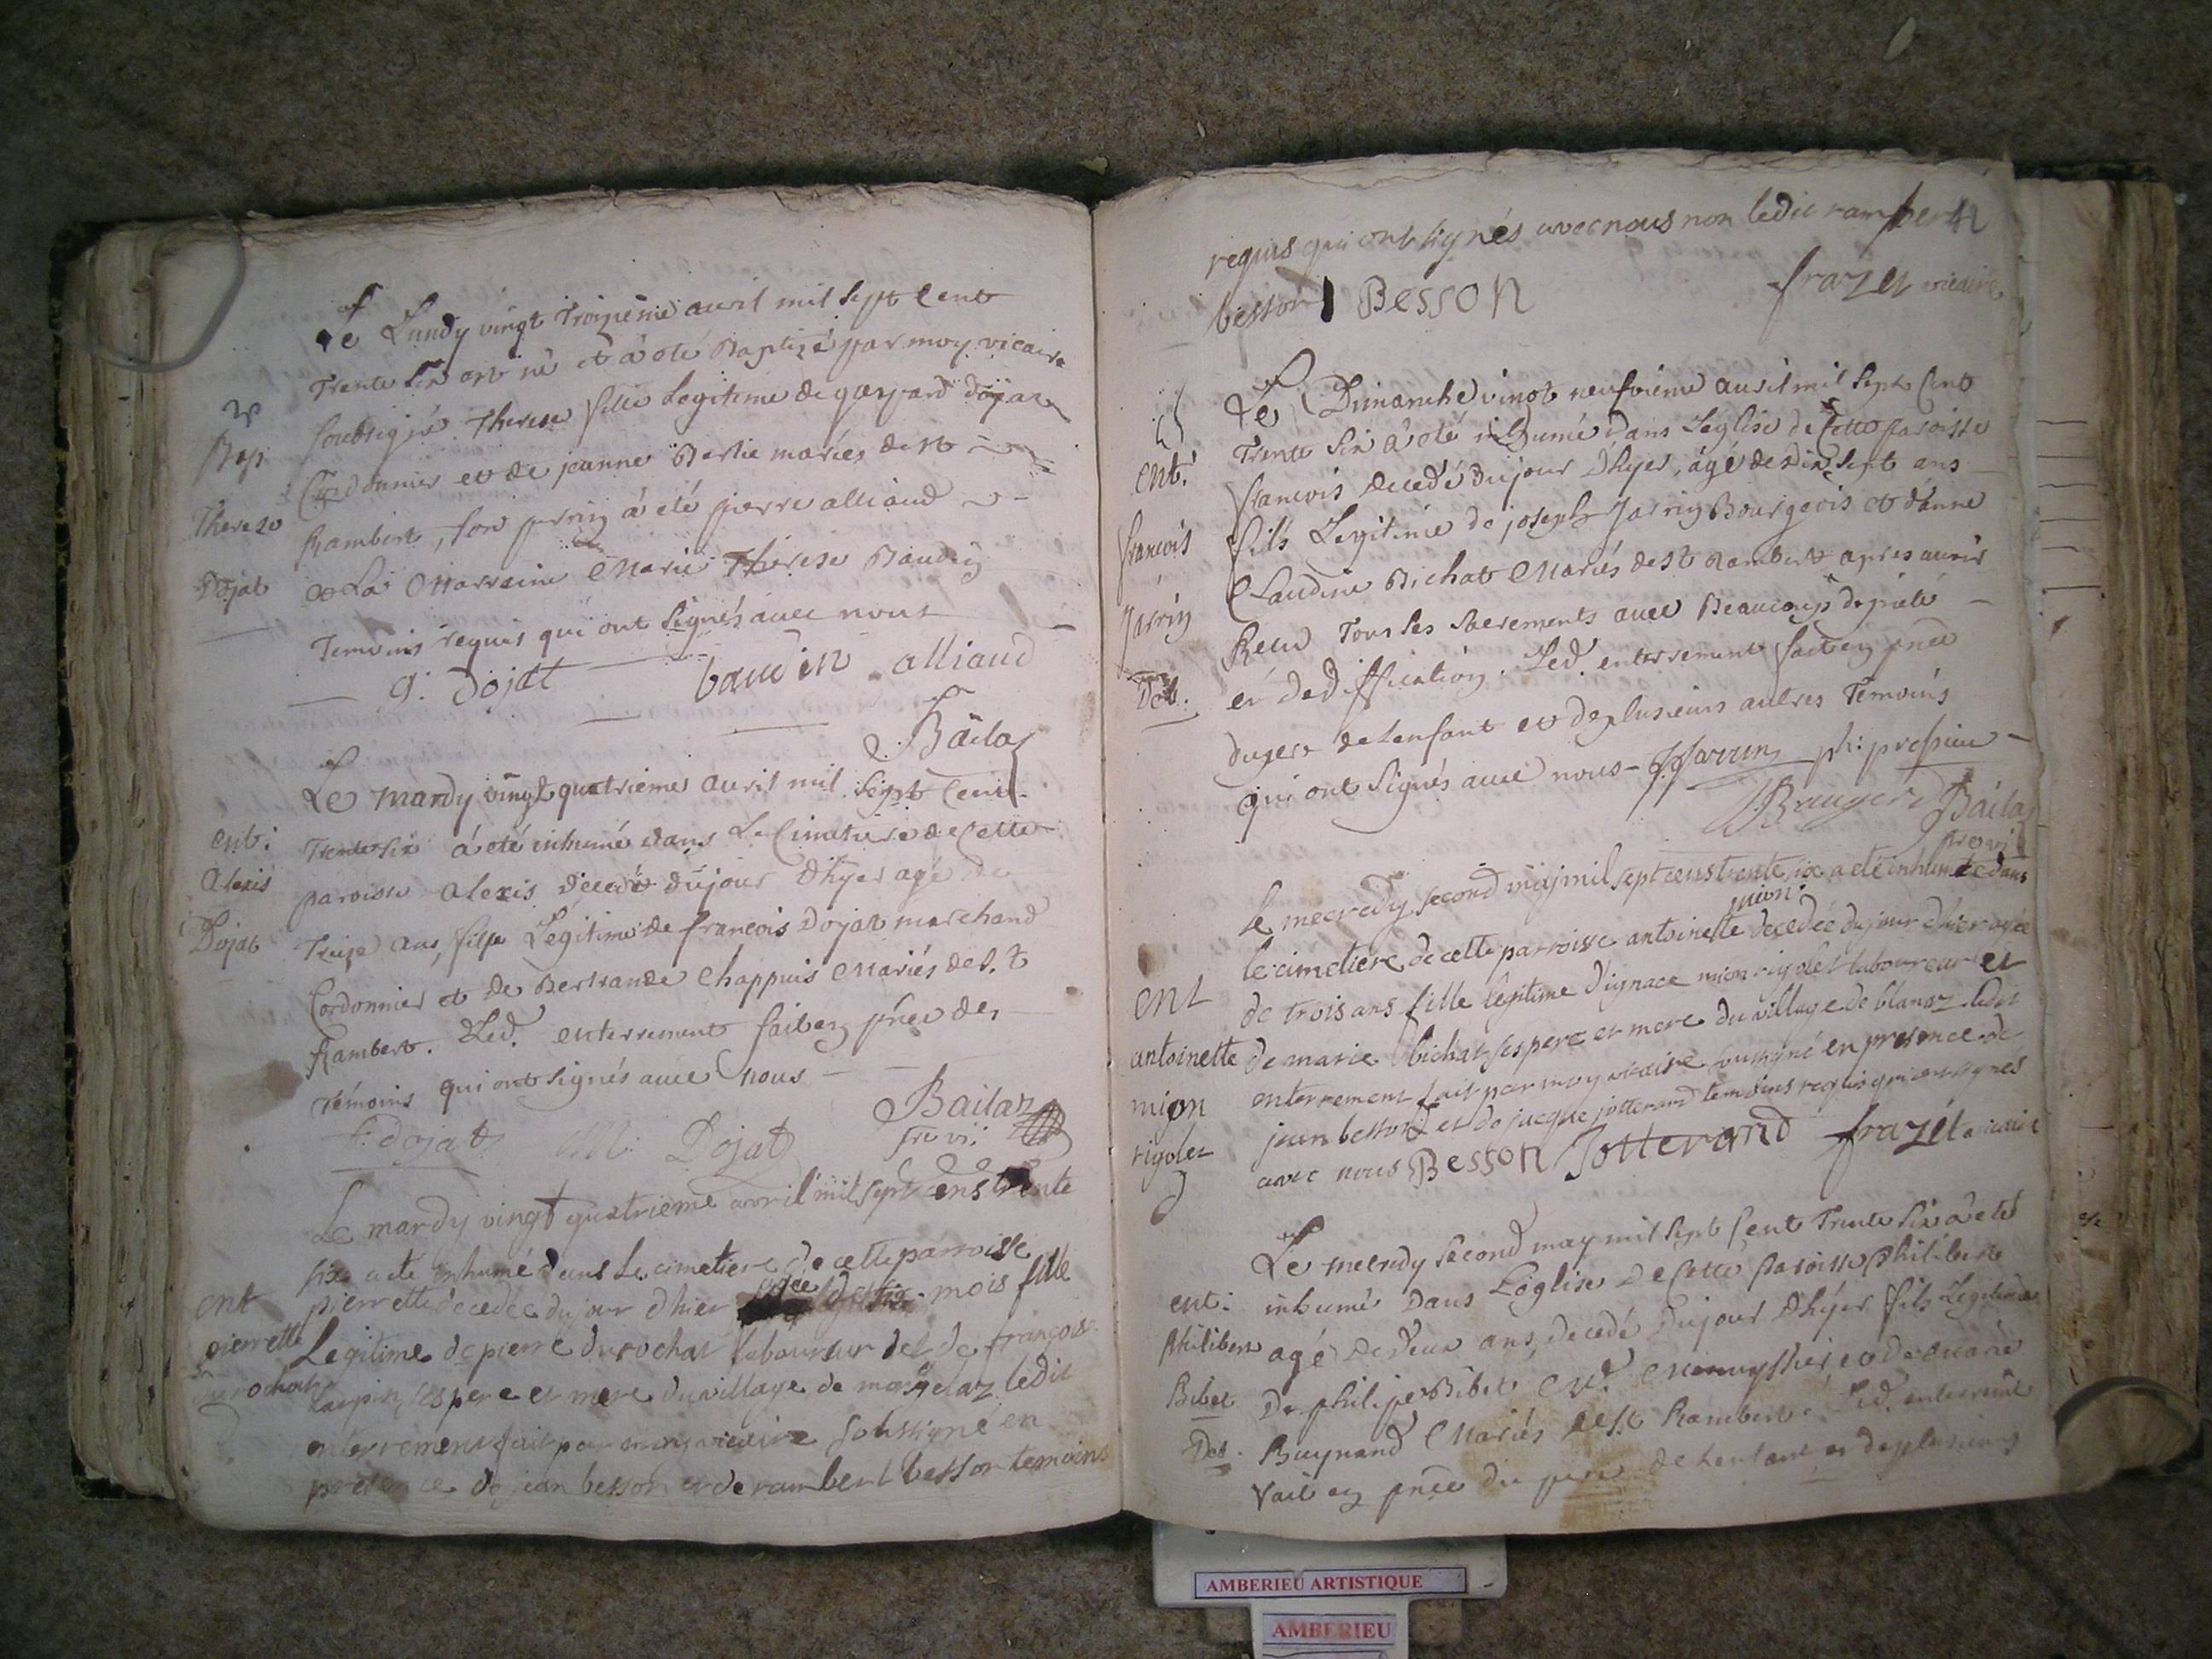 Le Lundy vingt Troizieme avril mil sept Cent
Trente Six est né et à été Baptizé par moy vicaire
soubsigné Therese fille Legitime de gaspard Dojat
Cordonnier et de jeanne Berlie mariés de st
Rambert, son parrin à été pierre alliaud
et La Marraine Marie Therese Baudin
Temoins requis qui ont signés avec nous
Bap
Therese
Dojat
g. Dojat baudin alliaud
Bailaz
Le mardy vingt quatrieme avril mil sept Cent
Trente Six à été inhumé dans Le Cimetiere de Cette
paroisse alexis decedé du jour d'hyer agé de
Treize ans, fils Légitime de françois Dojat marchand
Cordonnier et de Bertrande Chappuis Mariés de S.t
Rambert. Led. enterrement fait en pnce des
témoins qui ont signés avec nous
ent:
Alexis
Dojat
f: dojat M. Dojat Bailaz
pre vi:
Le mardy vingt quatrieme avril mil sept cens trente
six a été inhumé dans le cimetiere de cette parroisse
pierrette decedée du jour d hier agée de six mois fille
Legitime de pierre durochat laboureur et de françoise
ses pere et mere du village de morgelaz ledit
enterrement fait par moy vicaire soussigné en
presence de jean besson et de rambert besson temoins
ent
pierrette
durochat
requis qui ont signés avec nous non ledit rambert
besson Besson frazet vicaire
Le Dimanche vingt neufvieme avril mil sept Cent
Trente Six à été inhumé dans L'eglise de Cette paroisse
francois decedé du jour d'hyer, agé de dix sept ans
fils Legitime de joseph Jarrin Bourgeois et d'anne
Claudine Bichat Mariés de st Rambert apres avoir
Receu Tous ses sacrements avec Beaucoup de pieté
et d'ediffication. Led. enterrement fait en pnce
du pere de L'enfant et de plusieurs autres Temoins
qui ont signés avec nous Jarrin ph: pressieu
ent:
françois
Jarrin
Deb.
Brangere Bailaz
pre vi
Le mecredy second may mil sept cens trente six a été inhumée dans
le cimetiere de cette parroisse antoinette mion decedée du jour d'hier agée
de trois ans fille legitime d'ignace mion rigolet laboureur et
de marie bichat ses pere et mere du village de blanaz ledit
enterrement fait par moy vicaire soussigné en presence de
jean besson et de jacque jotterand temoins requis qui ont signés
avec nous Besson Jotterand frazét vicaire
ent
antoinette
mion
rigolet
Le mecredy second may mil sept Cent Trente Six à été
inhumé dans L'église de Cette paroisse philibert
agé de deux ans, decedé du jour d'hyer fils Legitime
De philipe Bibet M.e Menuysier, et de Marie
Buynand Mariés de S.t Rambert. Led. enterremt
fait en pnce du pere de L'enfant et de plusieurs
ent:
Philibert
Bibet
Deb.
AMBERIEU ARTISTIQUE
AMBERIEU